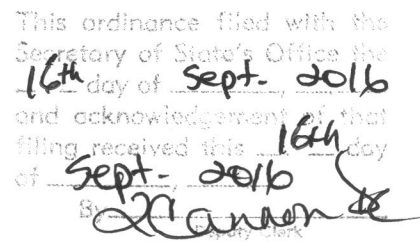 This ordinance filed with the
Secretary of State's Office the
16th day of Sept., 2016
and acknowledgement of that
filing received this 16th day
of Sept., 2016
By
Deputy Clerk